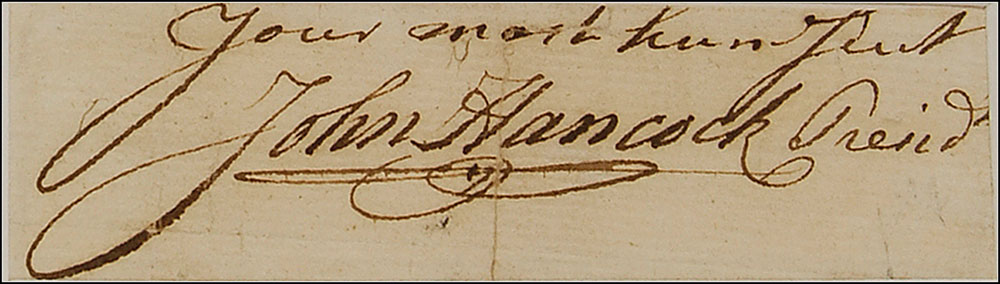 Your most hum Servt
John Hancock Presidt